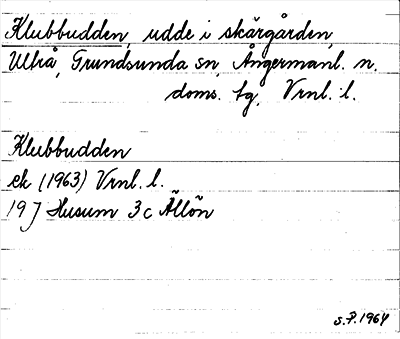 Klubbudden, udde i skärgården,
Ultrå, Grundsunda sn, Ångermanl. n.
doms. tg, Vrnl. l.
Klubbudden
ek (1963) Vrnl. l.
19 J Husum 3 c Ällön
S.P. 1964